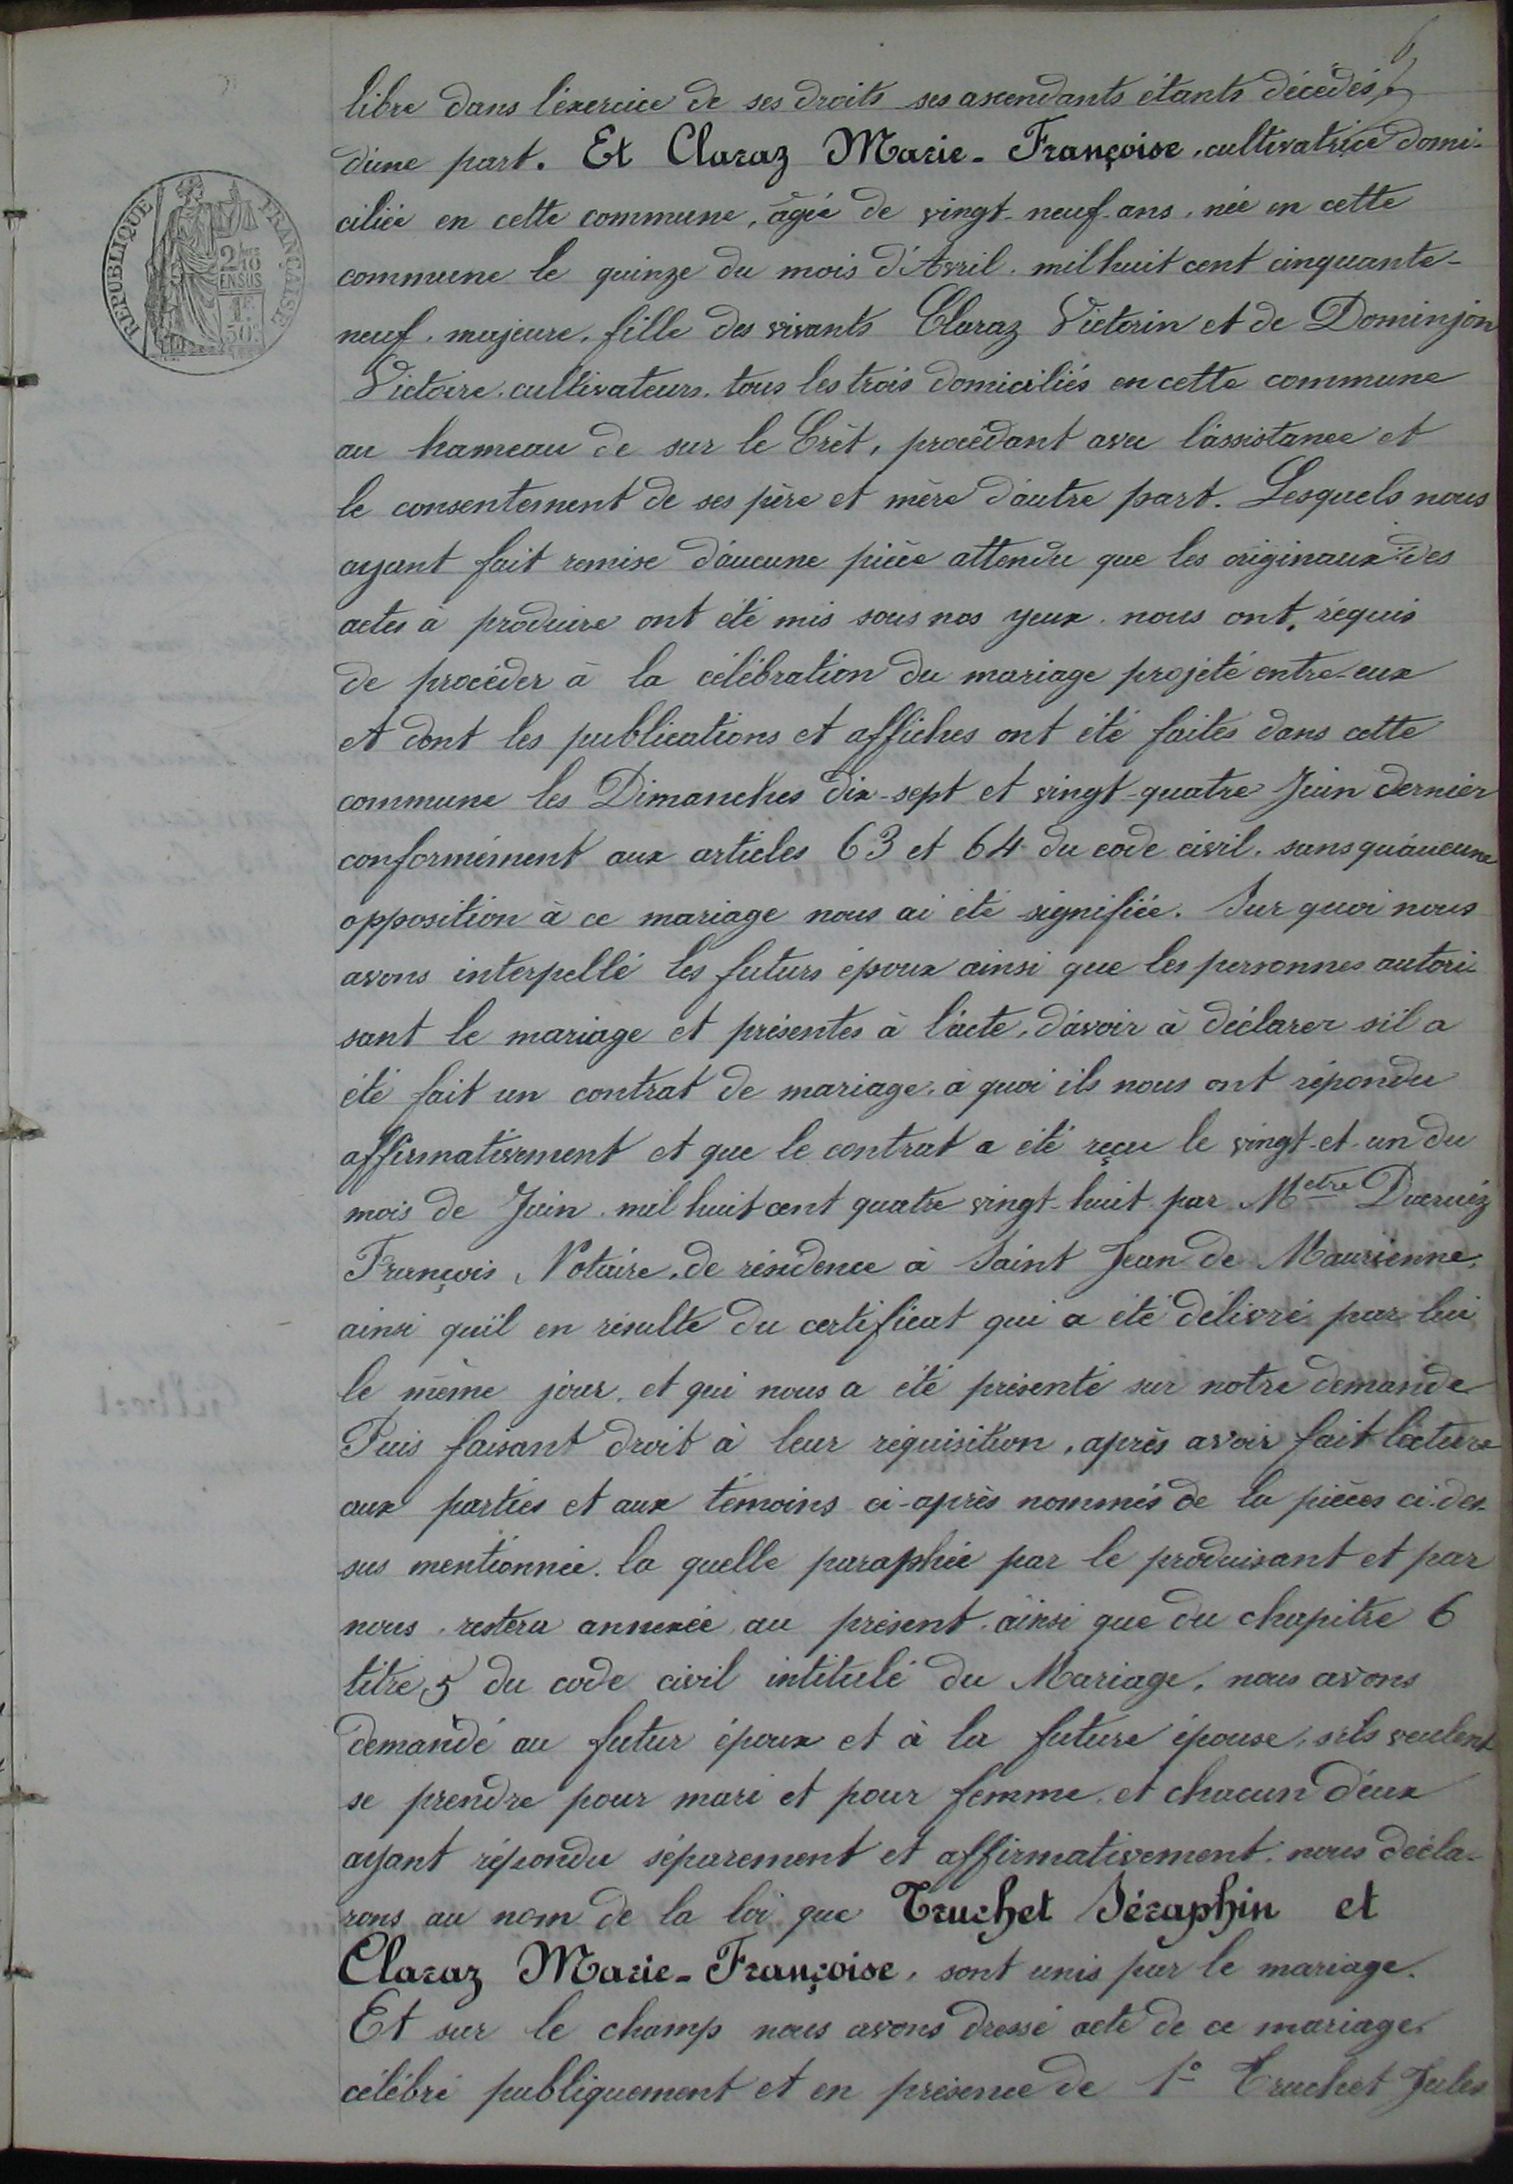 6
libre dans l'éxercice de ses droits ses ascendants étants décédés
d'une part. Et Claraz Marie-Françoise, cultivatrice domi-
ciliée en cette commune, âgée de vingt-neuf ans, née en cette
commune le quinze du mois d'Avril mil huit cent cinquante-
neuf, majeure, fille des vivants Claraz Victorin et de Dominjon
Victoire, cultivateurs, tous les trois domiciliés en cette commune
au hameau de sur le Crèt, procédant avec l'assistance et
le consentement de ses père et mère d'autre part. Lesquels nous
ayant fait remise d'aucune pièce attendu que les originaux des
actes à produire ont été mis sous nos yeux nous ont réquis
de procéder à la célébration du mariage projeté entre-eux
et dont les publications et affiches ont été faites dans cette
commune les Dimanches dix-sept et vingt-quatre Juin dernier
conformément aux articles 63 et 64 du code civil, sans qu'aucune
opposition à ce mariage nous ai été signifiée. Sur quoi nous
avons interpellé les futurs époux ainsi que les personnes autori-
sant le mariage et présentes à l'acte, d'avoir à déclarer s'il a
été fait un contrat de mariage, à quoi ils nous ont répondu
affirmativement et que le contrat a été reçu le vingt-et-un du
mois de Juin mil huit cent quatre vingt-huit par Mctre
François, Notaire, de résidence à Saint Jean de Maurienne,
ainsi qu'il en résulte du certificat qui a été délivré par lui
le même jour, et qui nous a été présenté sur notre demande
Puis faisant droit à leur réquisition, après avoir fait lecture
aux parties et aux témoins ci-après nommés de la pièces ci-des-
sus mentionnée, la quelle paraphée par le produisant et par
nous, restera annexée au présent, ainsi que du chapitre 6
titre 5 du code civil intitulé du Mariage, nous avons
demandé au futur époux et à la future épouse, s'ils veulent
se prendre pour mari et pour femme, et chacun d'eux
ayant répondu séparement et affirmativement, nous décla-
rons au nom de la loi que Truchet Séraphin et
Claraz Marie-Françoise, sont unis par le mariage.
Et sur le champ nous avons dressé acte de ce mariage
célébré publiquement et en présence de 1° Truchet Jules
RÉPUBLIQUE FRANÇAISE
2/10
EN SUS
1F
50c